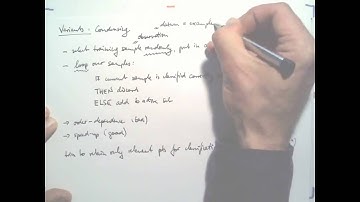 Variants - Condensing
- datum = example
= observation
- select training sample randomly, put in a
- loop over samples:
IF current sample is classified correctly
THEN discard
ELSE add to active set
-> order-dependence (bad)
-> speed-up (good)
to retain only relevant pts for classification